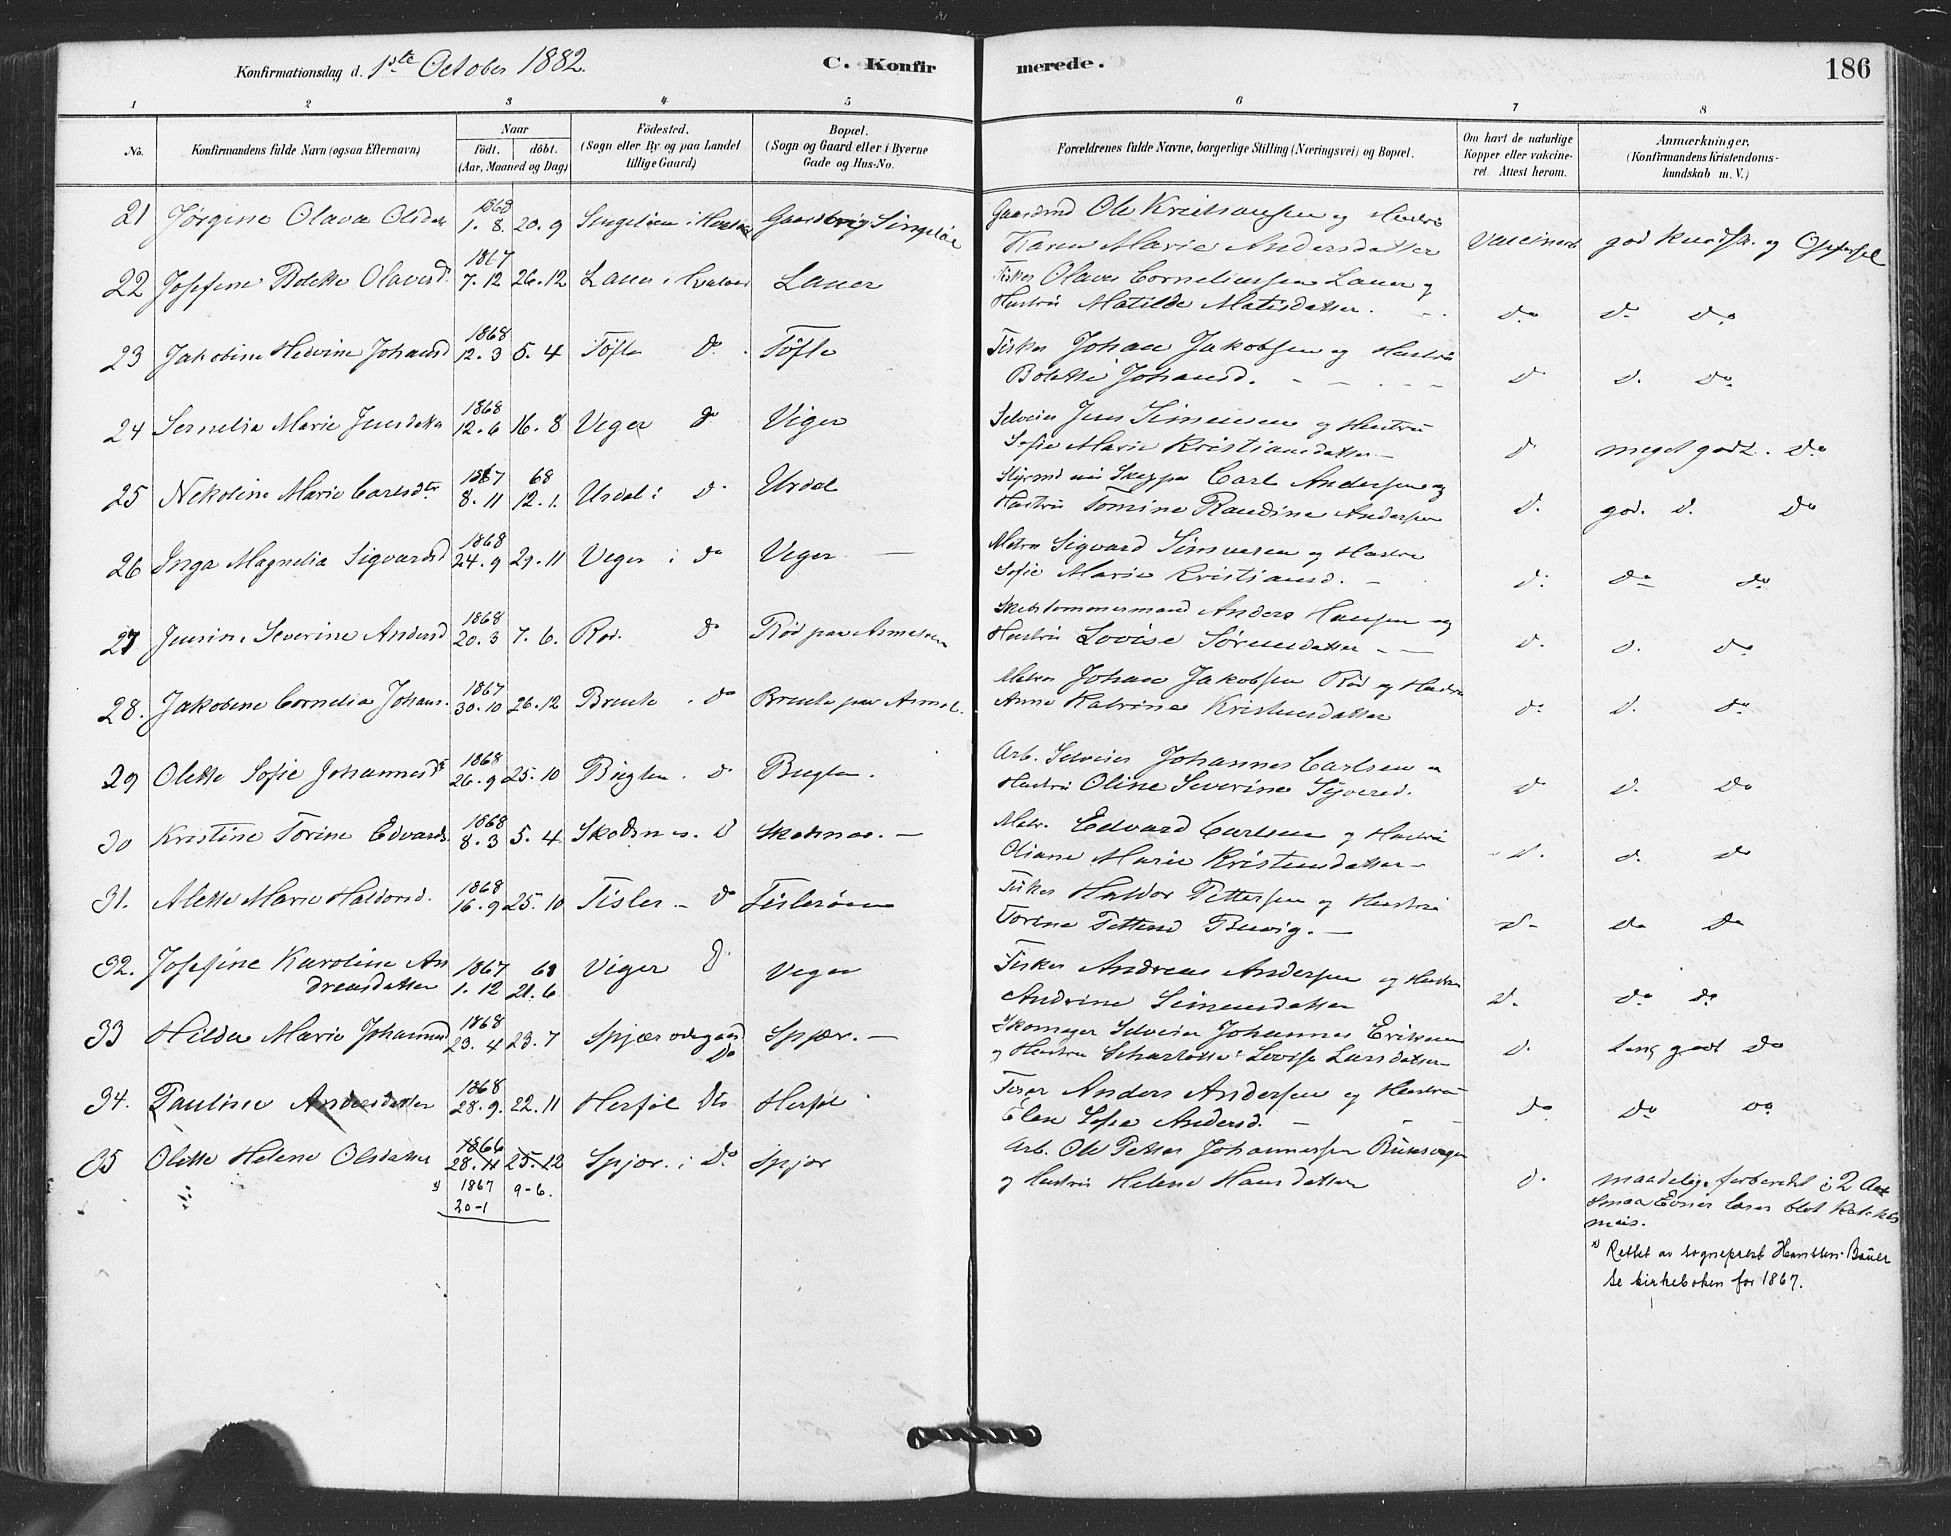 Konfirmationsdag d. 1ste October 1882.
C. Konfirmerede.
186
1 2 3 4 5 6 7 8
No.
Konfirmandens fulde Navn (ogsaa Efternavn)
Naar
födt. döbt.
(Aar, Maaned og Dag)
Födested.
(Sogn eller By og paa Landet
tillige Gaard)
Bopæl.
(Sogn og Gaard eller i Byerne
Gade og Hus-No.
Forældrenes fulde Navne, borgerlige Stilling (Næringsvei) og Bopæl.
Om havt de naturlige
Kopper eller vakcine-
ret. Attest herom.
Anmærkninger,
(Konfirmandens Kristendoms-
kundskab m. V.)
21 Jørgine Olava Olsdat 1868 1. 8. 20. 9 Singeløen i Singeløe
Gaardmd Ole Kristiansen og Hustru
Karen Marie Andersdatter Vaccineret god Kundsk. og Opførsel
22 Josefine Bolette Olavesd 1867 7. 12 26. 12 Lauer i Hvaler Lauer
Fisker Olaves Corneliussen Lauer og
Hustru Matilde Matisdatter. do do do
23 Jakobine Hedvine Johansd 1868 12. 3 5. 4 Tøfte do Tøfte
Fisker Johan Jakobsen og Hustru
Bolette Johansd. do do do
24 Sernelia Marie Jensdatter 1868 12. 6 16. 8 Viger do Viger
Selveier Jens Simensen og Hustru
Sofie Marie Kristiansdatter do meget godt. do
25 Nekoline Marie Carlsdtr 1867 8. 11 68 12. 1. Urdal i do Urdal
Styrmd Skipper Carl Andersen og
Hustru Tomine Randine Andersen do god. do do
26 Inga Magnelia Sigvardsd 1868 24. 9 29. 11 Viger i do Viger
Matros Sigvard Simensen og Hustru
Sofie Marie Kristiansd. do do do
27 Severine Andersd 1868 20. 3 7. 6. Rød. do Rød paa Asmaløen
Skibstømmermand Anders Hansen og
Hustru Lovise Sørensdatter do do do
28. Jakobine Cornelia Johans. 1867 30. 10 26. 12 Brente do Brente paa Asmal.
Matros Johan Jakobsen Rød og Hustru
Anne Katrine Kristensdatter do do do
29 Olette Sofie Johannesdt 1868 26. 9 25. 10 Bugten. do Bugten.
Arb. Selveier Johannes Carlsen o
Hustru Oline Severine Syversd. do do do
30 Kristine Torine Edvards 1868 8. 3 5. 4. Skodsnes. do Skodsnes.
Matr. Edvard Carlsen og Hustru
Oliane Marie Kristensdatter do do do
31. Alette Marie Haldorsd. 1868 16. 9 25. 10 Tisler do Tislerøen
Fisker Haldor Pettersen og Hustru
Torine Pettersd do do do
32. Josefine Karoline An
dreasdatter 1867 1. 12 68 21. 6 Viger do Viger
Fisker Andreas Andersen og Hustru
Andrine Simensdatter do do do
33 Hilda Marie Johannesd 1868 23. 4 23. 7 Spjær do Spjær.
Skomager Selveier Johannes Eriksen
og Hustru Scharlotte Lovise Larsdatter do godt do
34. Pauline Andersdatter 1868 28. 9. 22. 11 Herføl do Herføl
Fisker Anders Andersen og Hustru
Elen Sofie Andersd. do do do
35 Olette Helene Olsdatter 1866 28. 11 25. 12 Spjær. i do Spjær
x) 1867 20-1 9-6.
Arb. Ole Petter Johannesen
og Hustru Helene Hansdatter do maadelig forberedt i 2 Aar
smaa Evner læser blot Katekis
mus.
x) Rettet av sogneprest Bauer
Se kirkeboken for 1867.